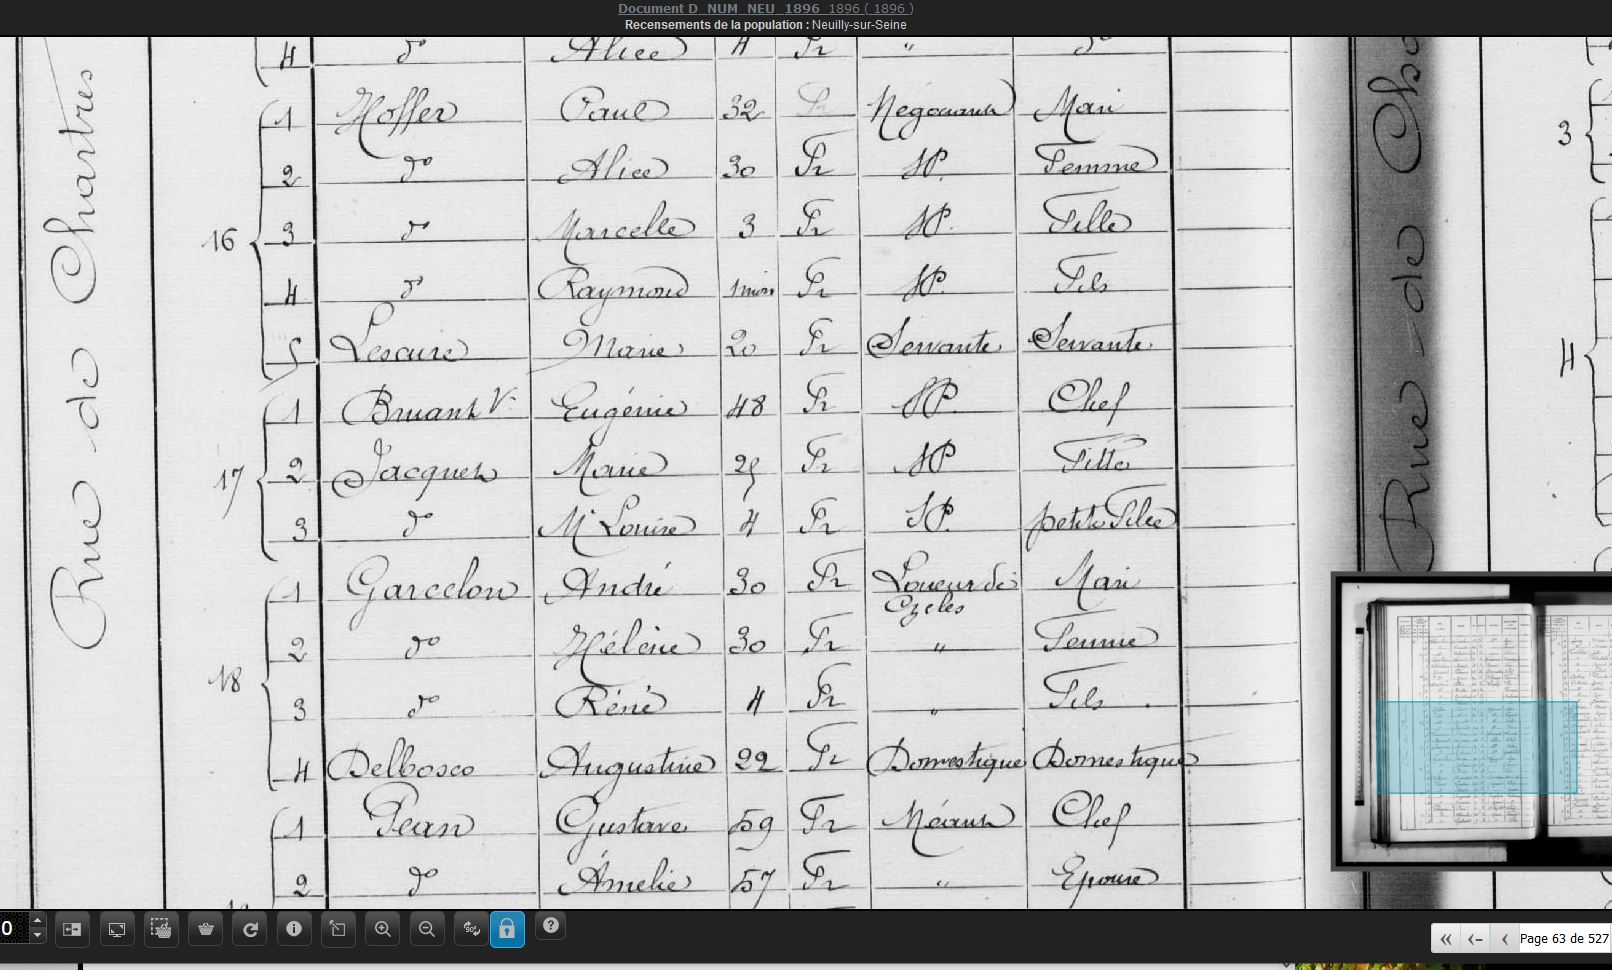 Document D_NUM_NEU_1896 1896 ( 1896 )
Recensements de la population : Neuilly-sur-Seine
Rue de Chartres
4 do Alice 4 Fr " do
16
1 Hoffer Paul 32 Fr Négociant Mari
2 do Alice 30 Fr SP. Femme
3 do Marcelle 3 Fr SP. Fille
4 do Raymond 1 mois Fr SP. Fils
5 Lescure Marie 20 Fr Servante Servante
17
1 Bruant Ve Eugénie 48 Fr SP. Chef
2 Jacques Marie 25 Fr SP Fille
3 do Me Louise 4 Fr SP. petite Fille
18
1 Garcelon André 30 Fr Loueur de Cycles Mari
2 do Hélène 30 Fr " Femme
3 do Réné 4 Fr " Fils
4 Delbosco Augustine 22 Fr Domestique Domestique
1 Pean Gustave 59 Fr Chef
2 do Amelie 57 Fr " Epouse
Rue de Cha
3
4
0
90°
Page 63 de 527